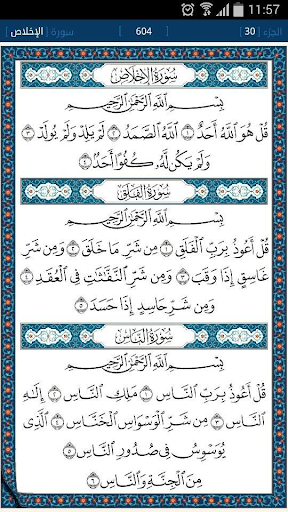 11:57
الجزء | 30 604 سورة | الإخلاص
سُورَةُ الإِخْلَاصِ
بِسْمِ ٱللَّهِ ٱلرَّحْمَٰنِ ٱلرَّحِيمِ
قُلْ هُوَ ٱللَّهُ أَحَدٌ ١ ٱللَّهُ ٱلصَّمَدُ ٢ لَمْ يَلِدْ وَلَمْ يُولَدْ ٣
وَلَمْ يَكُن لَّهُۥ كُفُوًا أَحَدٌۢ ٤
سُورَةُ الفَلَقِ
بِسْمِ ٱللَّهِ ٱلرَّحْمَٰنِ ٱلرَّحِيمِ
قُلْ أَعُوذُ بِرَبِّ ٱلْفَلَقِ ١ مِن شَرِّ مَا خَلَقَ ٢ وَمِن شَرِّ
غَاسِقٍ إِذَا وَقَبَ ٣ وَمِن شَرِّ ٱلنَّفَّٰثَٰتِ فِى ٱلْعُقَدِ ٤
وَمِن شَرِّ حَاسِدٍ إِذَا حَسَدَ ٥
سُورَةُ النَّاسِ
بِسْمِ ٱللَّهِ ٱلرَّحْمَٰنِ ٱلرَّحِيمِ
قُلْ أَعُوذُ بِرَبِّ ٱلنَّاسِ ١ مَلِكِ ٱلنَّاسِ ٢ إِلَٰهِ
ٱلنَّاسِ ٣ مِن شَرِّ ٱلْوَسْوَاسِ ٱلْخَنَّاسِ ٤ ٱلَّذِى
يُوَسْوِسُ فِى صُدُورِ ٱلنَّاسِ ٥
مِنَ ٱلْجِنَّةِ وَٱلنَّاسِ ٦